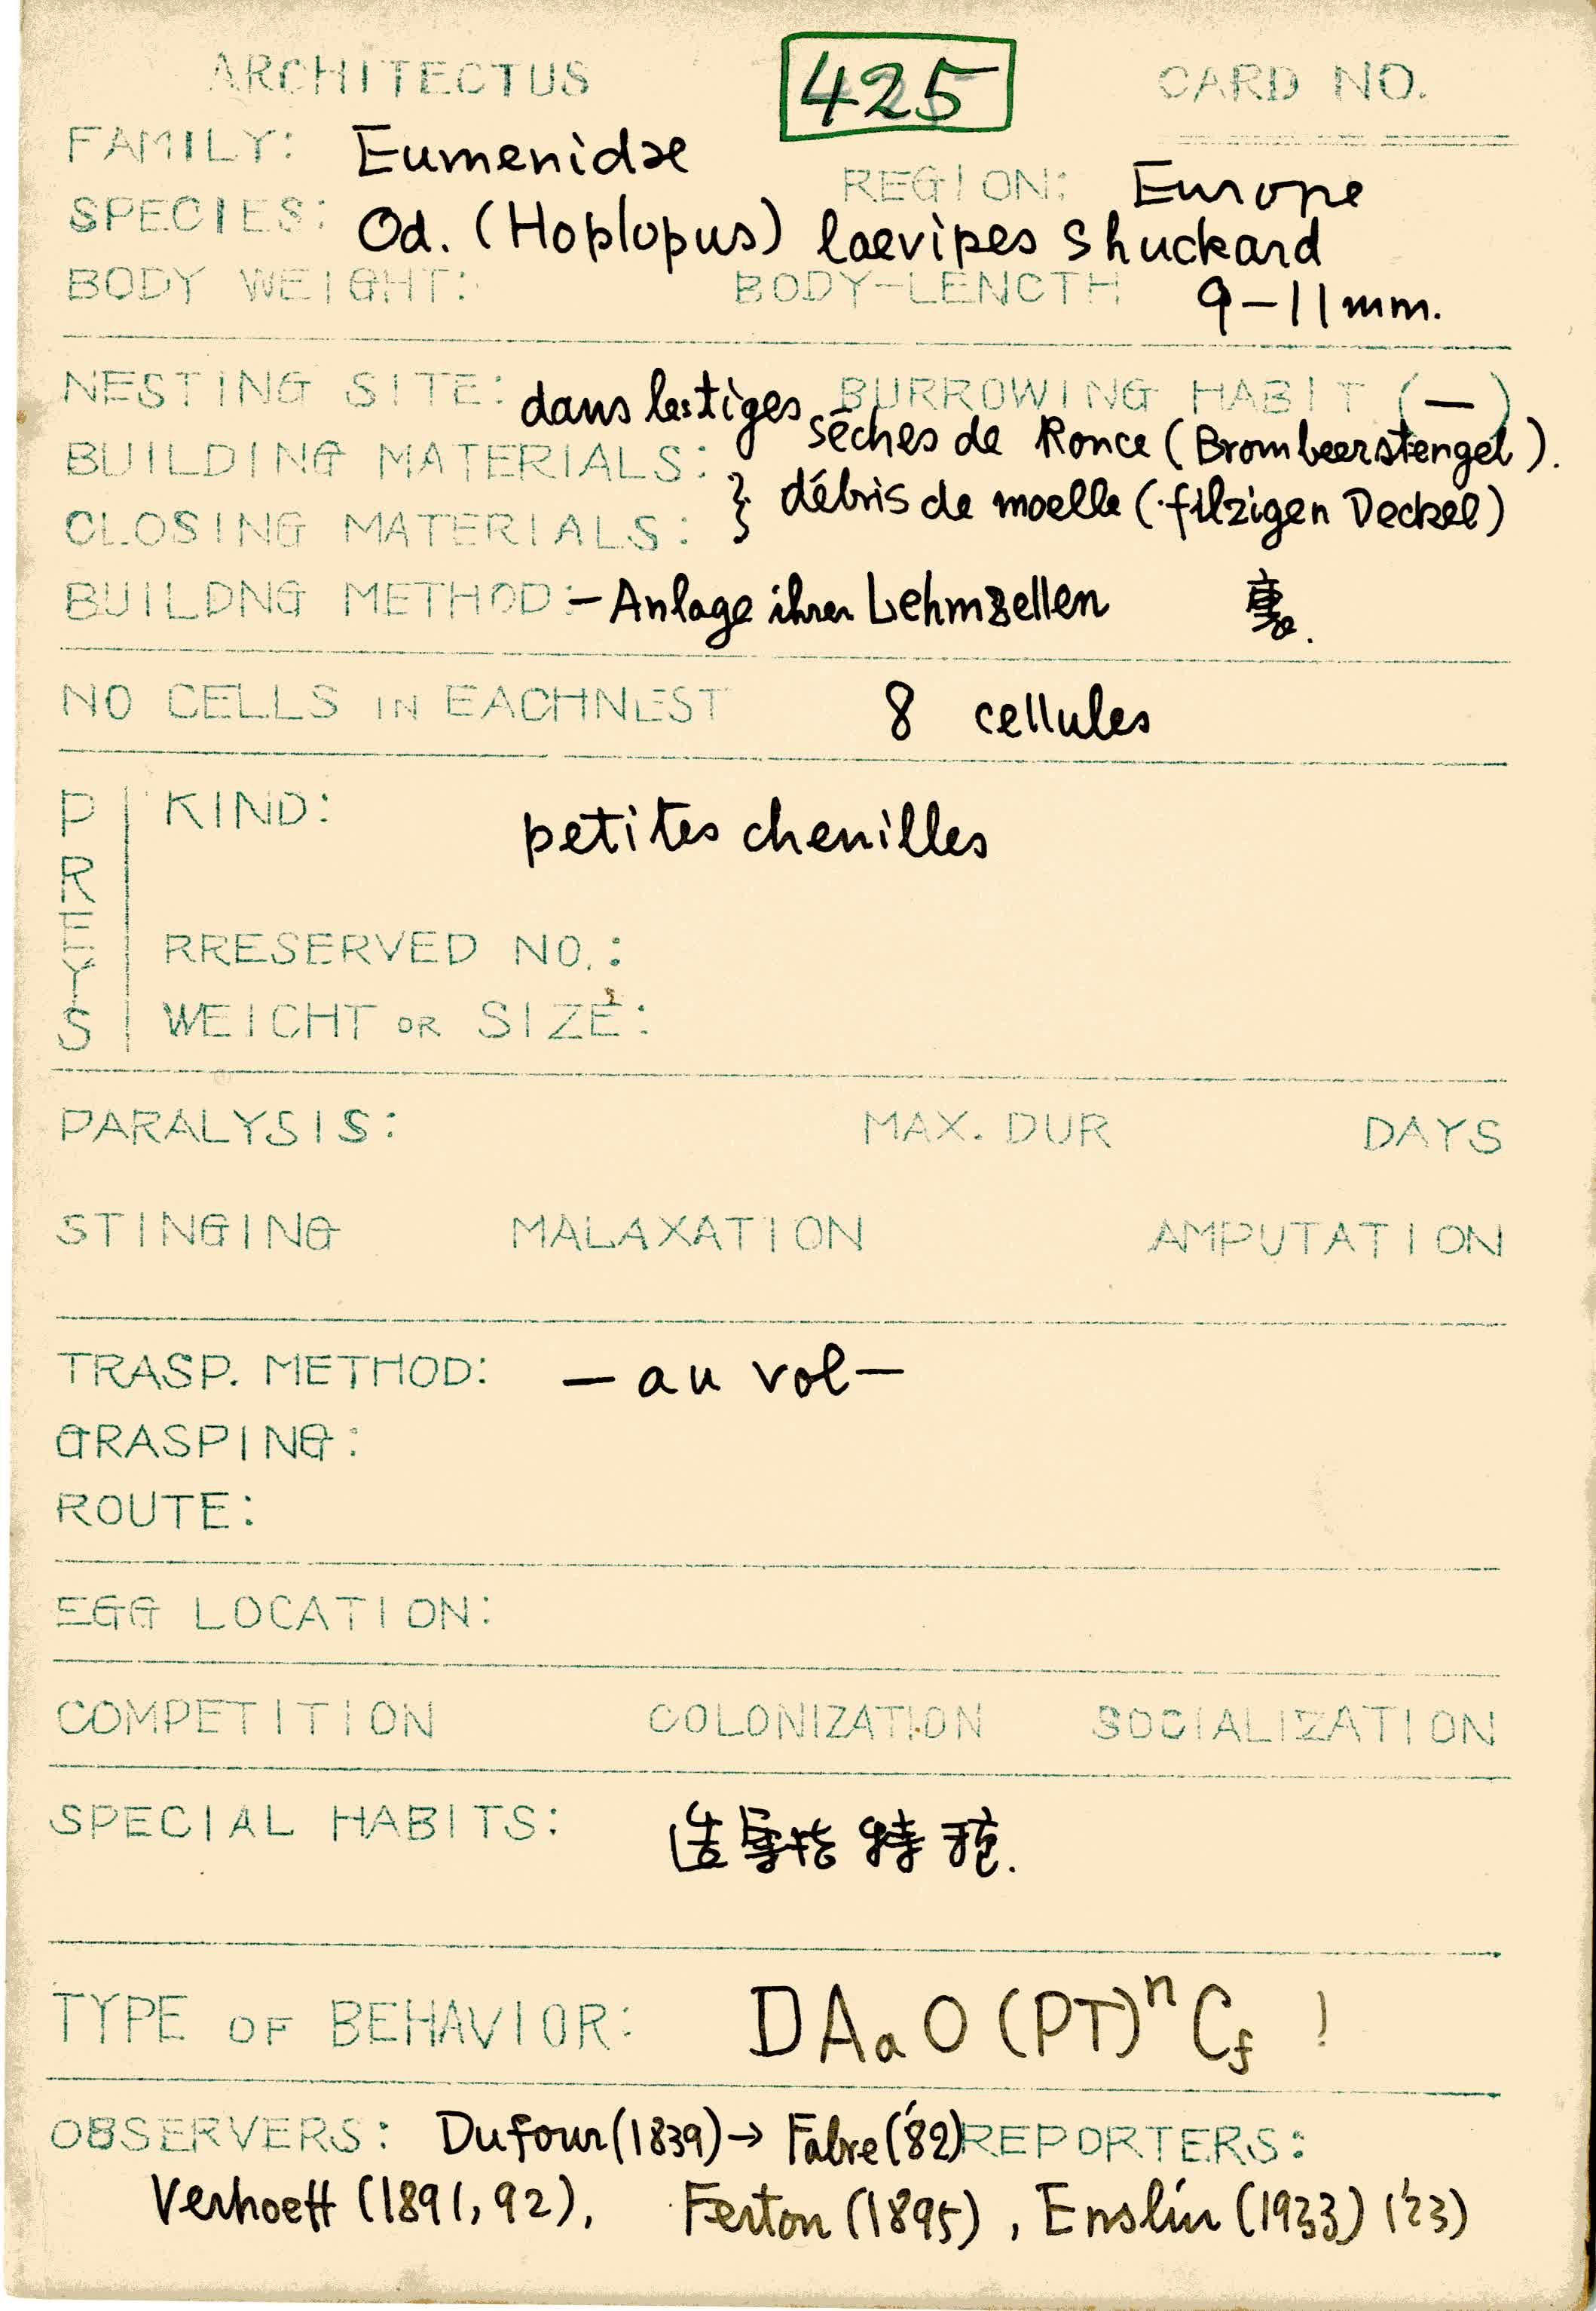 ARCHITECTUS 425 CARD NO.
FAMILY: Eumenidae
REGION: Europe
SPECIES: Od. (Hoplopus) laevipes Shuckard
BODY WEIGHT: BODY-LENGTH 9-11mm.
NESTING SITE: dans les tiges BURROWING HABIT (—)
sèches de Ronce (Brombeerstengel).
BUILDING MATERIALS:
} débris de moelle (filzigen Deckel)
CLOSING MATERIALS:
BUILDNG METHOD: - Anlage ihrer Lehmzellen 裏.
NO CELLS IN EACHNEST 8 cellules
PREYS
KIND: petites chenilles
RRESERVED NO.:
WEICHT OR SIZE:
PARALYSIS: MAX. DUR DAYS
STINGING MALAXATION AMPUTATION
TRASP. METHOD: — au vol —
GRASPING:
ROUTE:
EGG LOCATION:
COMPETITION COLONIZATION SOCIALIZATION
SPECIAL HABITS:
TYPE OF BEHAVIOR: DAaO(PT)ⁿCf !
OBSERVERS: Dufour (1839) → Fabre ('82) REPORTERS:
Verhoeff (1891, 92), Ferton (1895), Enslin (1933) ('23)